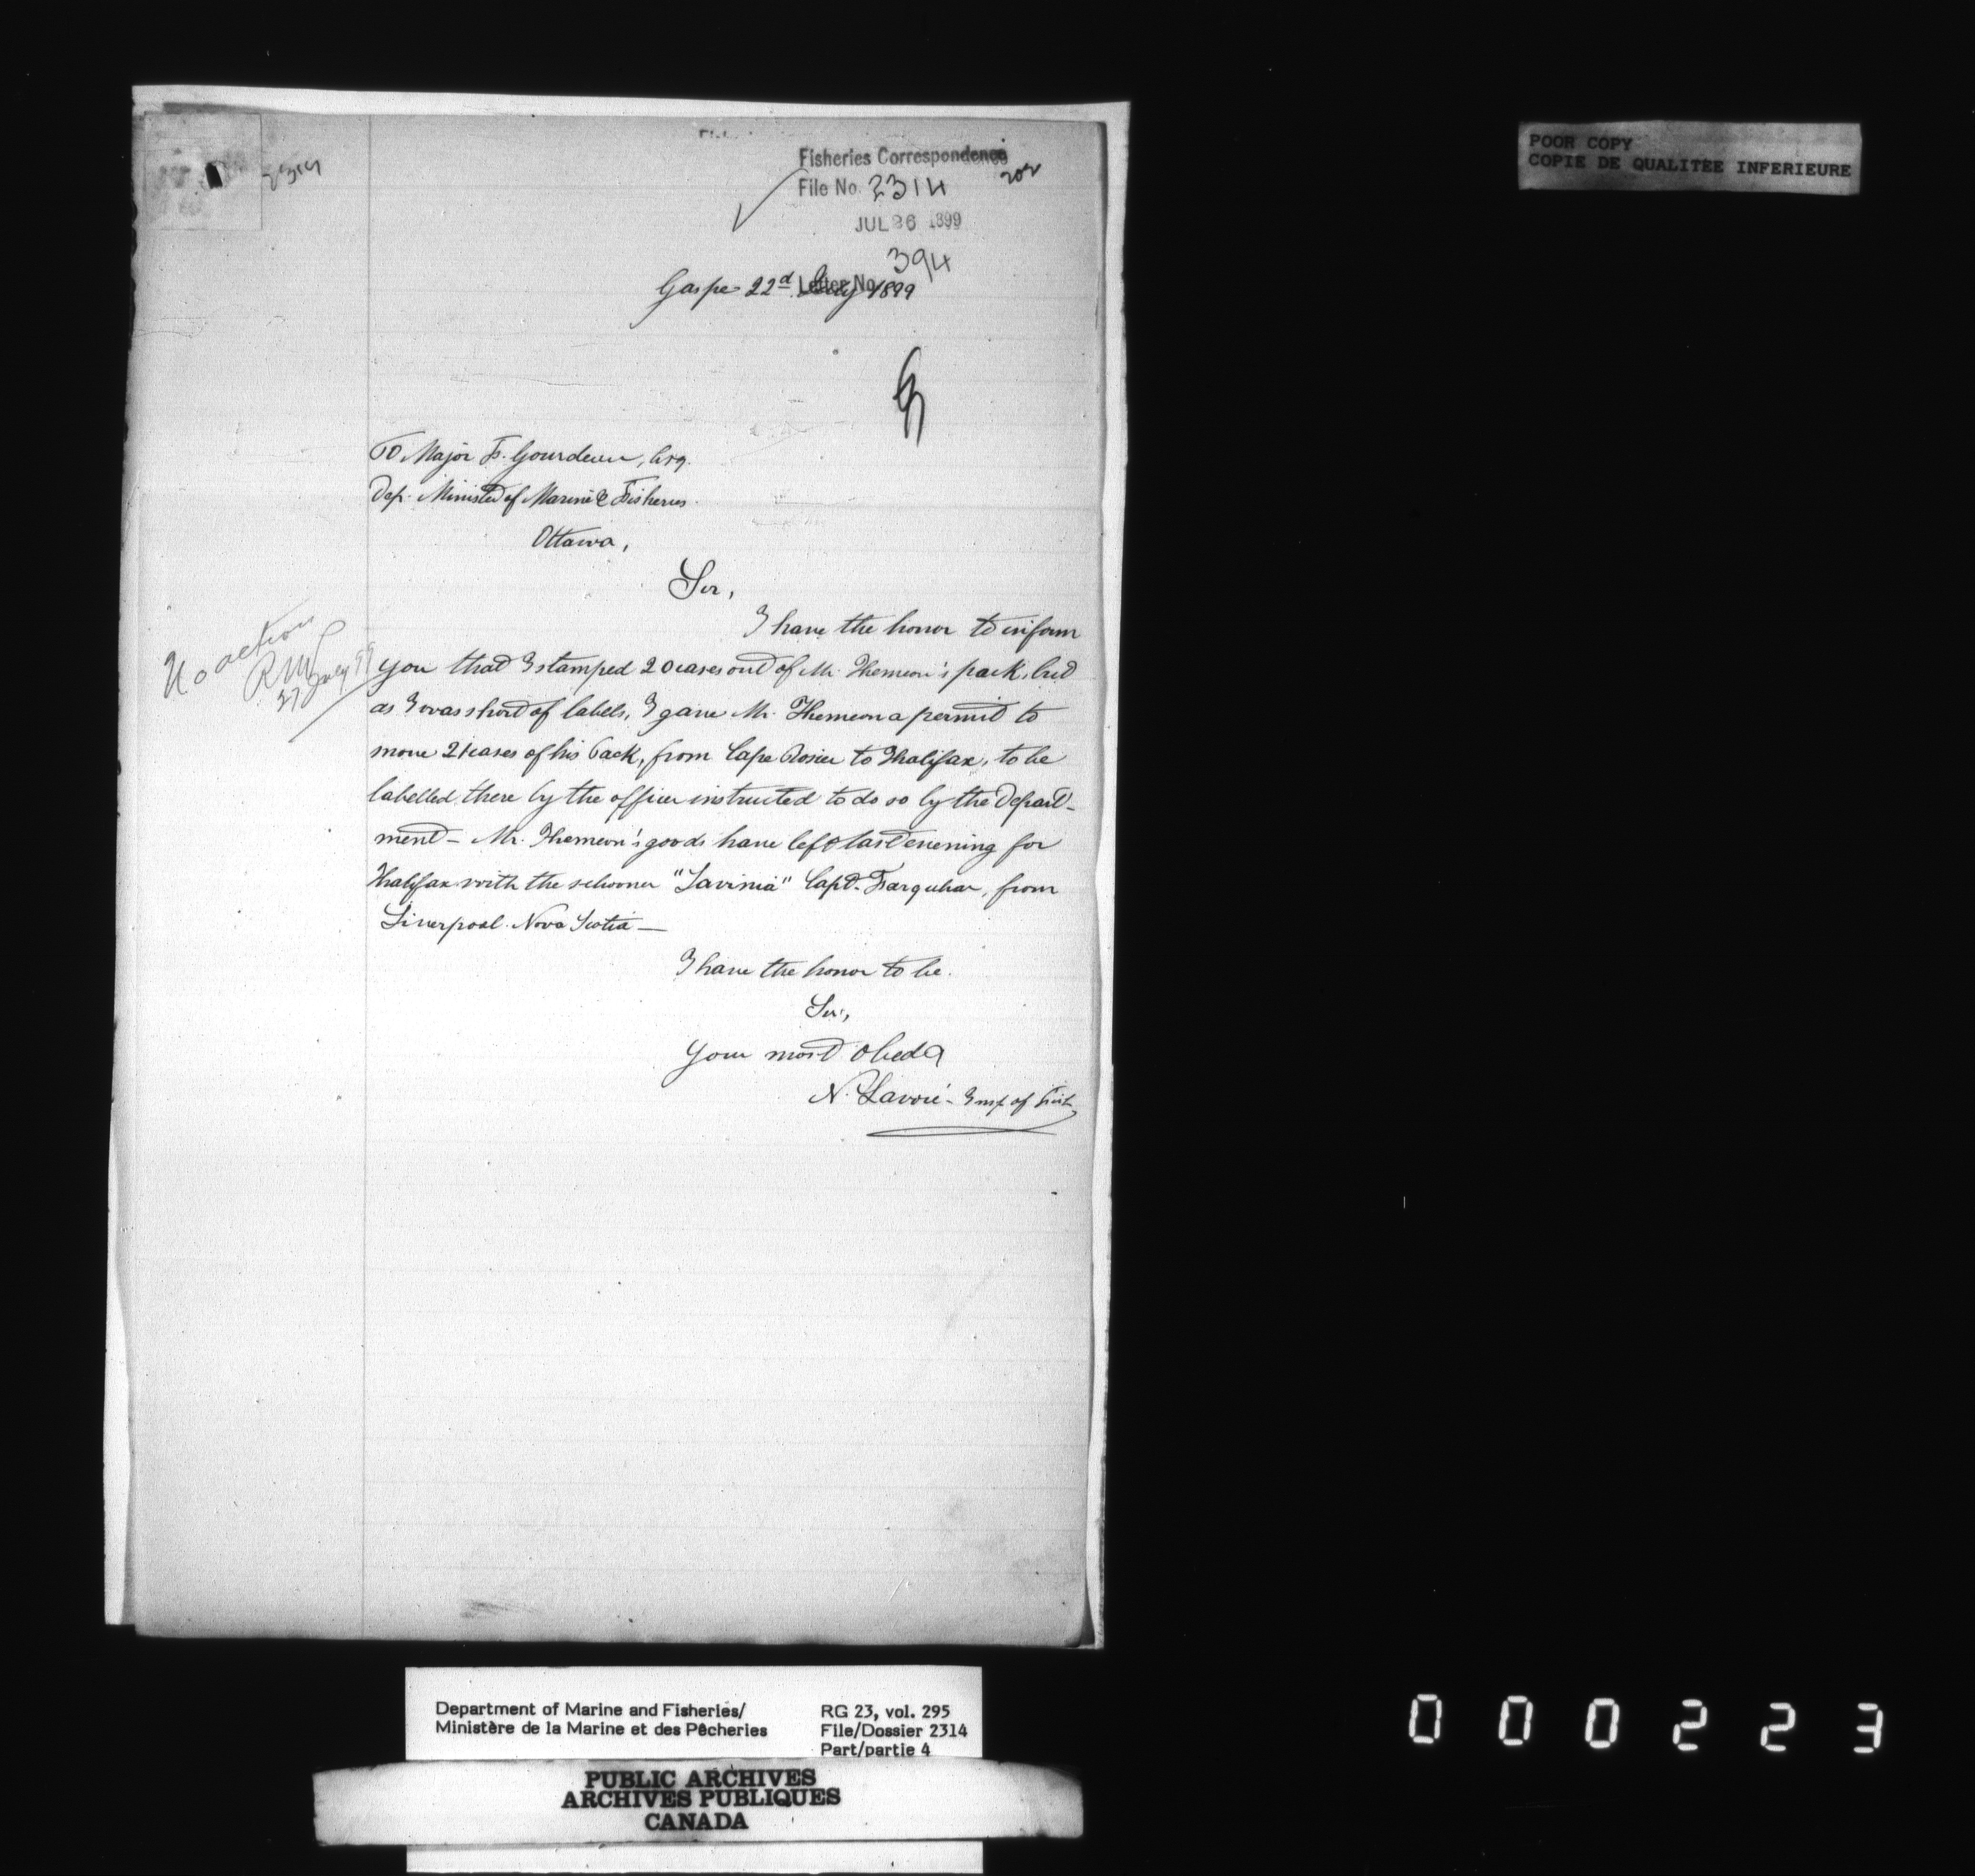 POOR COPY
COPIE DE QUALITEE INFERIEURE
2314
Fisheries Correspondence
File No. 2314
202
JUL 26 1899
394
Letter No.
Gaspe 22d July 1899
To Major F. Gourdeau, Esq.
Dep. Minister of Marine & Fisheries.
Ottawa,
Sir,
I have the honor to inform
you that I stamped 20 cases out of Mr. Themeon's pack, but
as I was short of labels, I gave Mr. Themeon a permit to
move 21 cases of his pack, from Cape Rosier to Halifax, to be
labelled there by the officer instructed to do so by the Depart-
ment - Mr. Themeon's goods have left last evening for
Halifax with the schooner "Lavinia" Capt. Farquhar, from
Liverpool. Nova Scotia -
I have the honor to be.
Sir,
Your most obed
N. Lavoie - Insp. of Fish
No action
27 July 99
Department of Marine and Fisheries/
Ministère de la Marine et des Pêcheries
RG 23, vol. 295
File/Dossier 2314
Part/partie 4
PUBLIC ARCHIVES
ARCHIVES PUBLIQUES
CANADA
000223